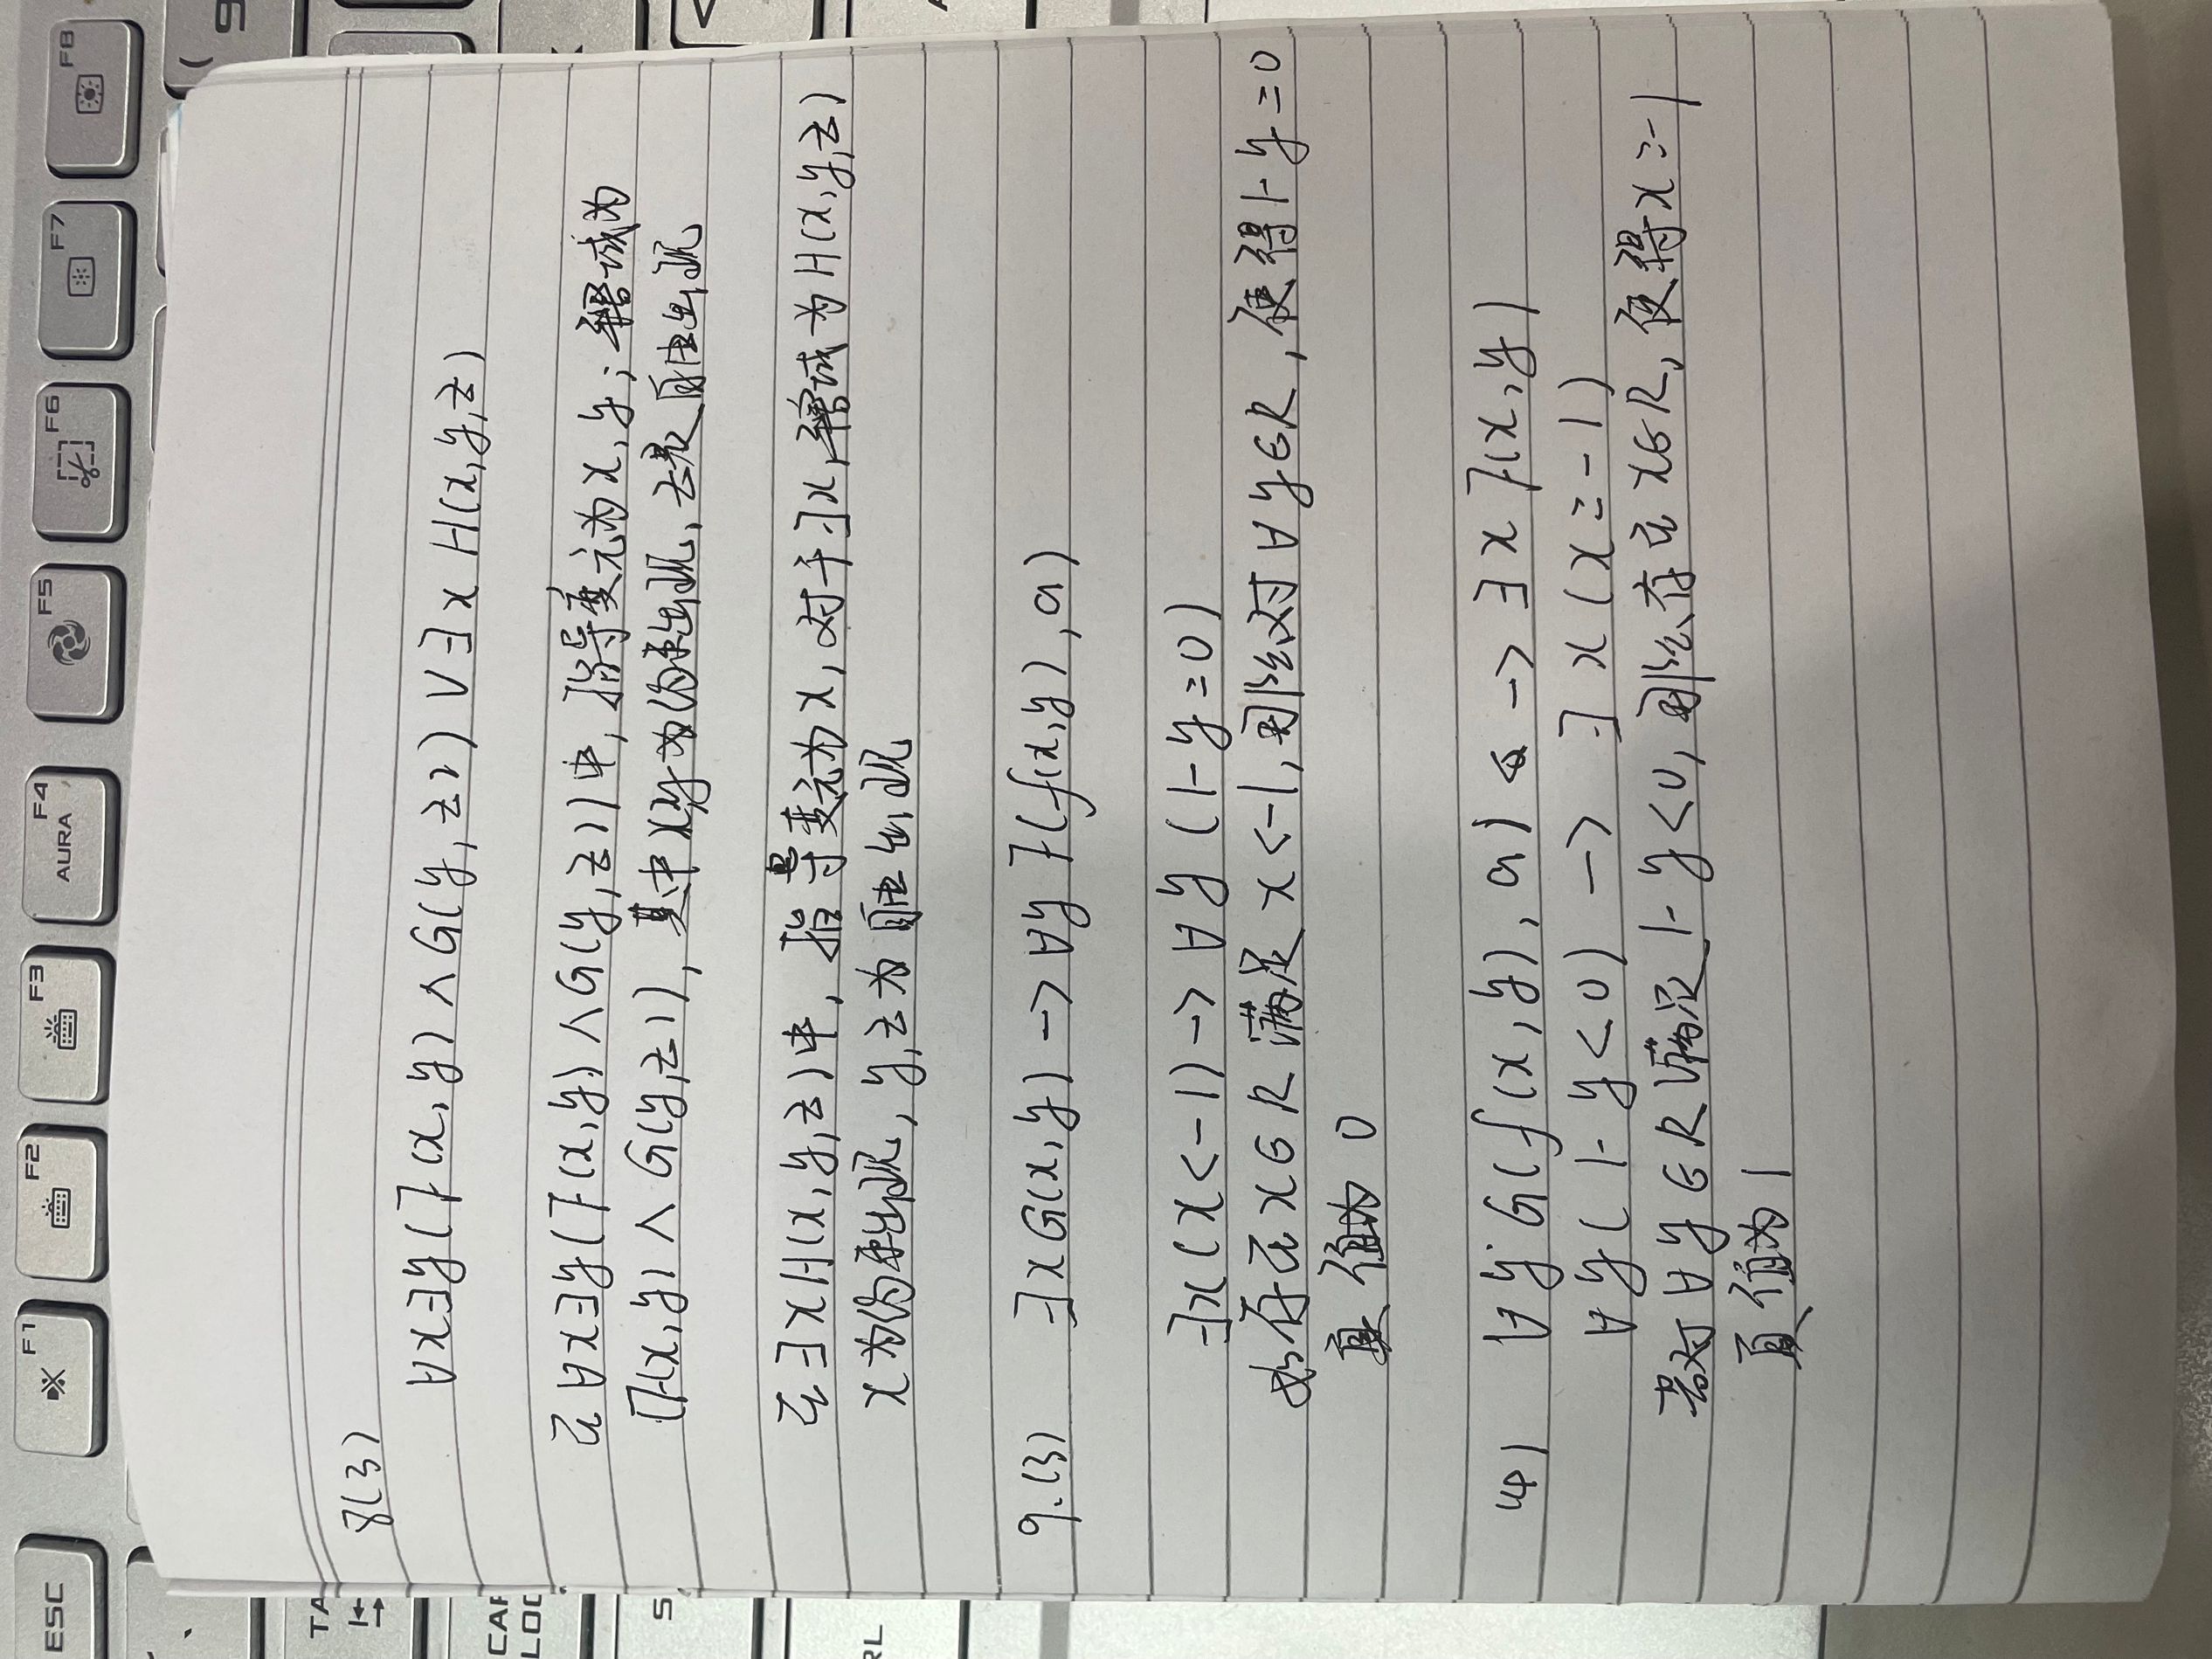 ESC F1 F2 F3 F4 AURA F5 F6 F7 F8
8(3)
∀x∃y(F(x,y)∧G(y,z))∨∃x H(x,y,z)
在∀x∃y(F(x,y)∧G(y,z))中,指导变元为x,y;辖域为
(F(x,y)∧G(y,z)),其中x,y为约束出现,z是自由出现
在∃xH(x,y,z)中,指导变元为x,对于∃x,辖域为H(x,y,z)
x为约束出现,y,z为自由出现
9.(3) ∃xG(x,y)→∀yF(f(x,y),a)
∃x(x<-1)→∀y(1-y=0)
如存在x∈R满足x<-1,那么对∀y∈R,使得1-y=0
真值为0
(4) ∀yG(f(x,y),a)→∃xF(x,y)
∀y(1-y<0)→∃x(x=-1)
若对∀y∈R满足1-y<0,那么存在x∈R,使得x=-1
真值为1